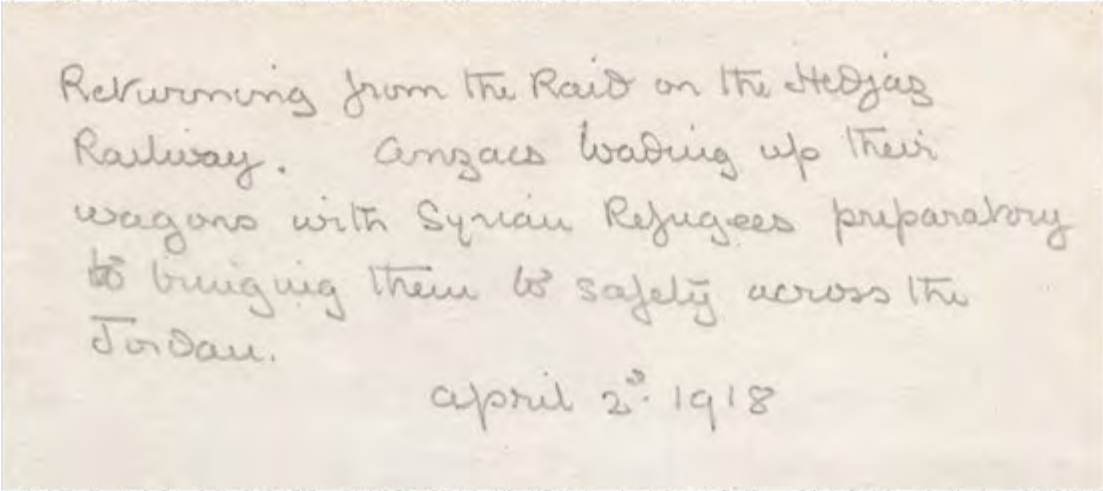 Returning from the Raid on the Hedjaz
Railway. Anzacs loading up their
wagons with Syrian Refugees preparatory
to bringing them to safety across the
Jordan.
April 2d. 1918